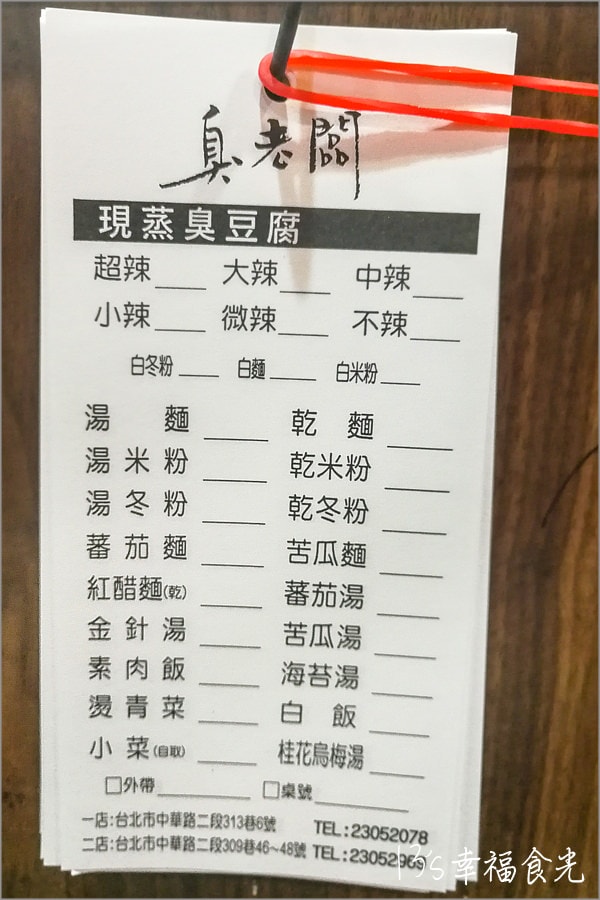 臭老闆
現蒸臭豆腐
超辣____ 大辣____ 中辣____
小辣____ 微辣____ 不辣____
白冬粉____ 白麵____ 白米粉____
湯麵____ 乾麵____
湯米粉____ 乾米粉____
湯冬粉____ 乾冬粉____
蕃茄麵____ 苦瓜麵____
紅醋麵(乾)____ 蕃茄湯____
金針湯____ 苦瓜湯____
素肉飯____ 海苔湯____
燙青菜____ 白飯____
小菜(自取)____ 桂花烏梅湯____
□外帶____ □桌號____
一店:台北市中華路二段313巷6號 TEL:23052078
二店:台北市中華路二段309巷46~48號 TEL:23052989
13's幸福食光